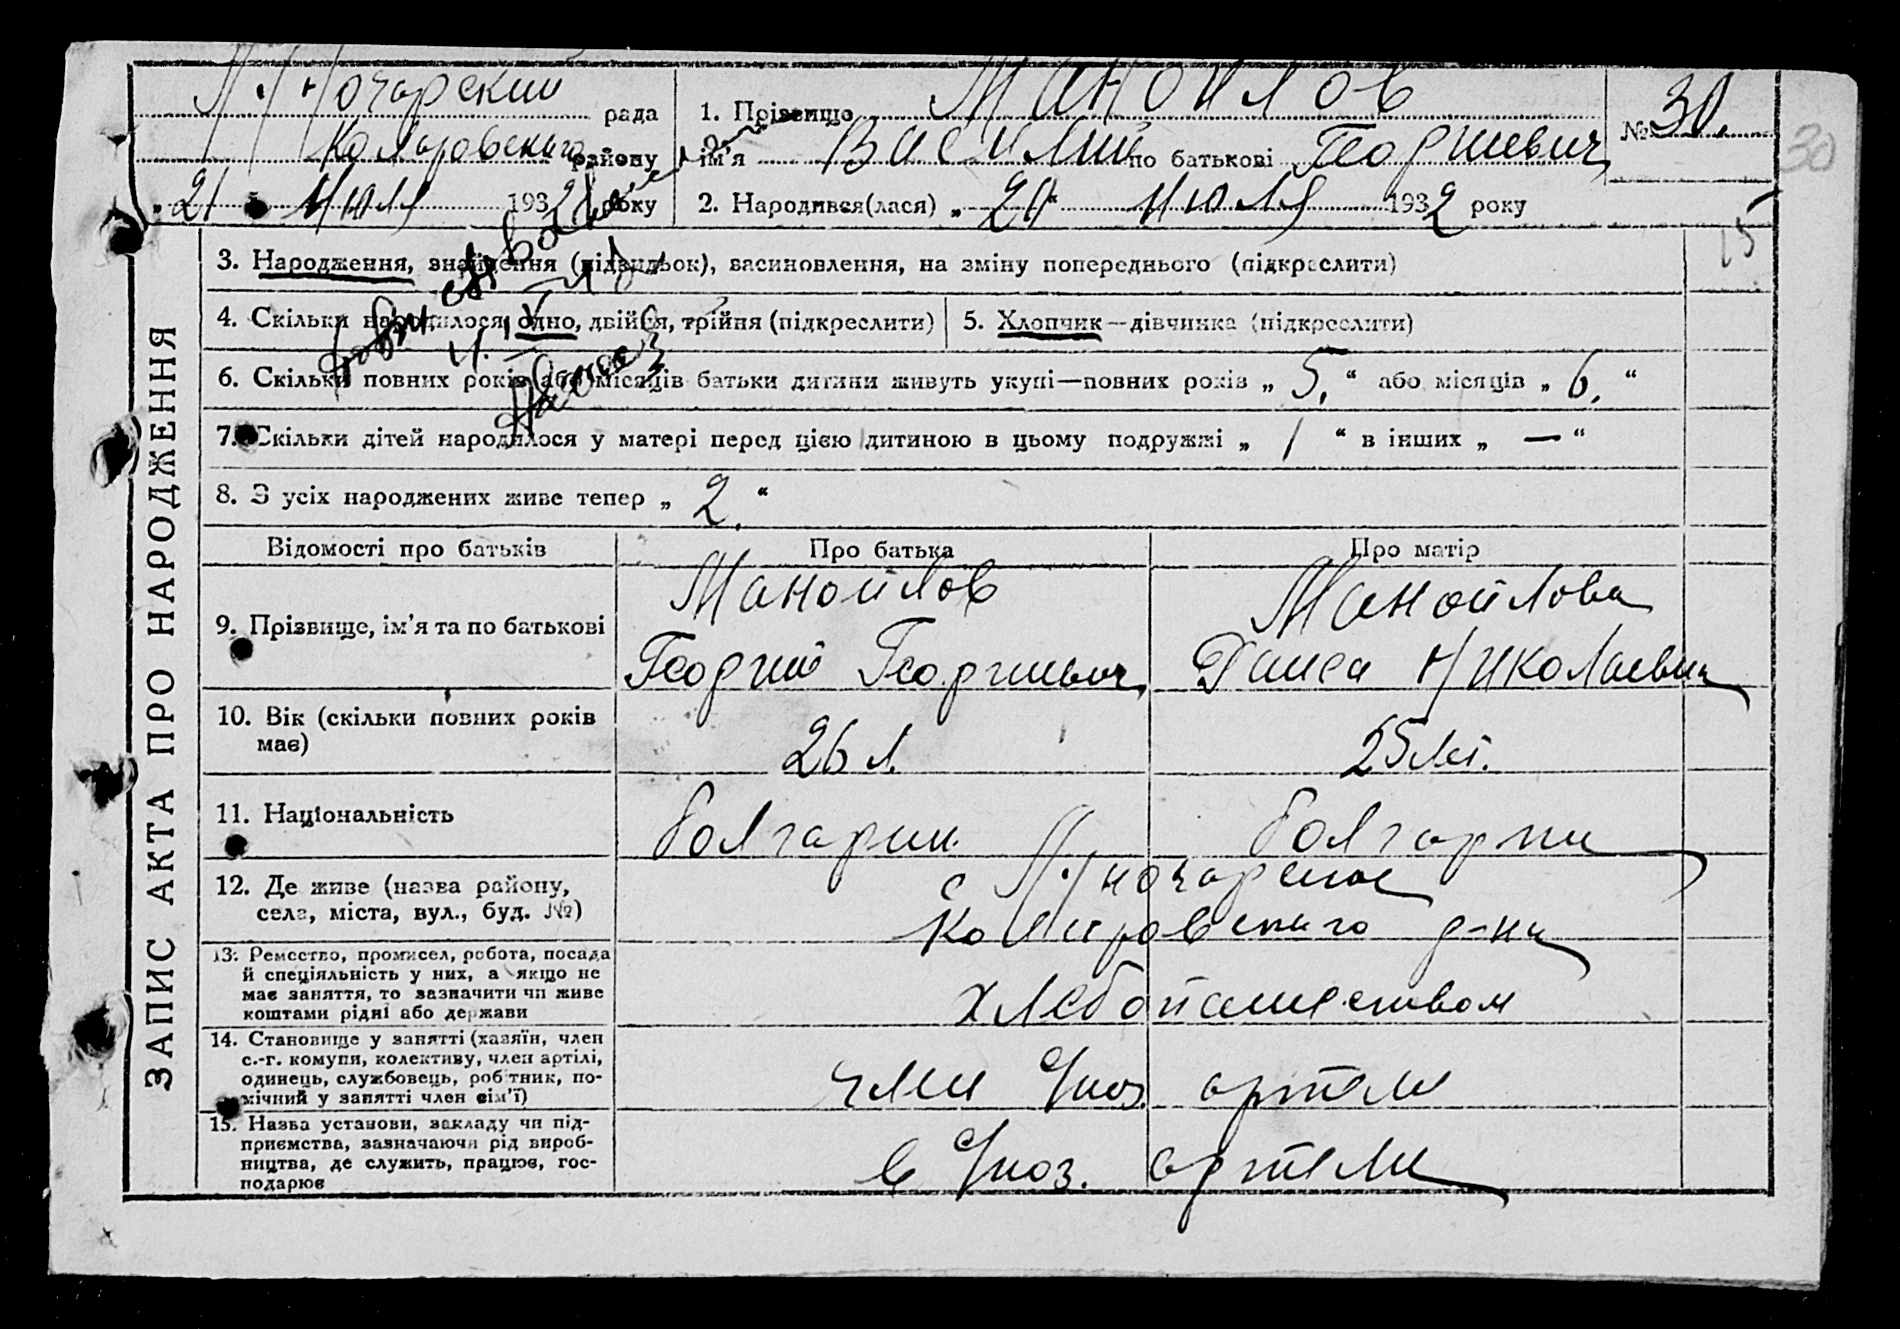 рада
Коларовского району
21 Июля 1932 року
1. Прізвище Манойлов
ім'я Василий по батькові Георгиевич
2. Народився(лася) „ 21 “ Июля 1932 року
№ 30.
30
15
ЗАПИС АКТА ПРО НАРОДЖЕННЯ
3. Народження, знайдення (підкидьок), всиновлення, на зміну попереднього (підкреслити)
4. Скільки народилося: одно, двійня, трійня (підкреслити)
5. Хлопчик—дівчинка (підкреслити)
6. Скільки повних років або місяців батьки дитини живуть укупі—повних років „ 5. “ або місяців „ 6. “
7. Скільки дітей народилося у матері перед цією дитиною в цьому подружжі „ 1 “ в інших „ — “
8. З усіх народжених живе тепер „ 2. “
Відомості про батьків
Про батька
Про матір
9. Прізвище, ім'я та по батькові
Манойлов
Георгий Георгиевич
Манойлова
Николаевна
10. Вік (скільки повних років
має)
26 л.
25 лет.
11. Національність
болгарин.
болгарка
12. Де живе (назва району,
села, міста, вул., буд. №)
с
Коларовского р-на
13. Ремество, промисел, робота, посада
й спеціяльність у них, а якщо не
має заняття, то зазначити чи живе
коштами рідні або держави
хлебопашеством
14. Становище у занятті (хазяїн, член
с.-г. комуни, колективу, член артілі,
одинець, службовець, робітник, по-
мічний у занятті член сім'ї)
член с/хоз. артели
15. Назва установи, закладу чи під-
приємства, зазначаючи рід вироб-
ництва, де служить, працює, гос-
подарює
в с/хоз. артели